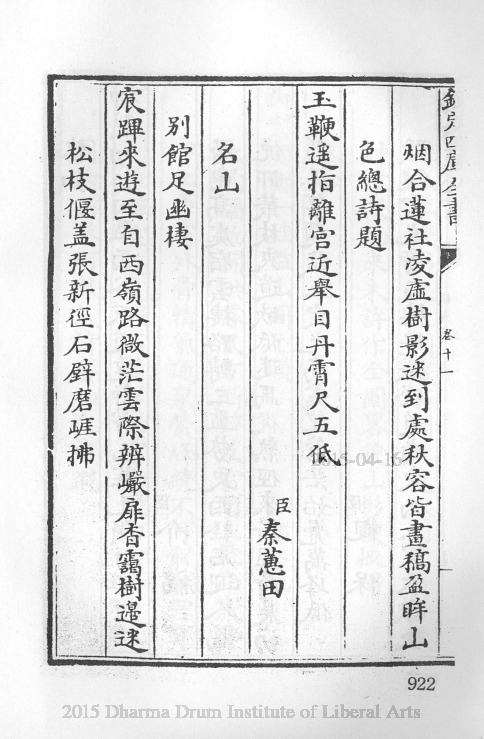 欽定四庫全書
卷十一
烟合蓮社凌虛樹影迷到處秋容皆畫稿盈眸山
色總詩題
玉鞭遥指離宮近舉目丹霄尺五低
臣秦蕙田
名山
别館足幽棲
宸蹕來遊至自西嶺路微茫雲際辨巖扉杳靄樹邉迷
松枝偃盖張新徑石壁磨崕拂
922
2015-04-16
2015 Dharma Drum Institute of Liberal Arts